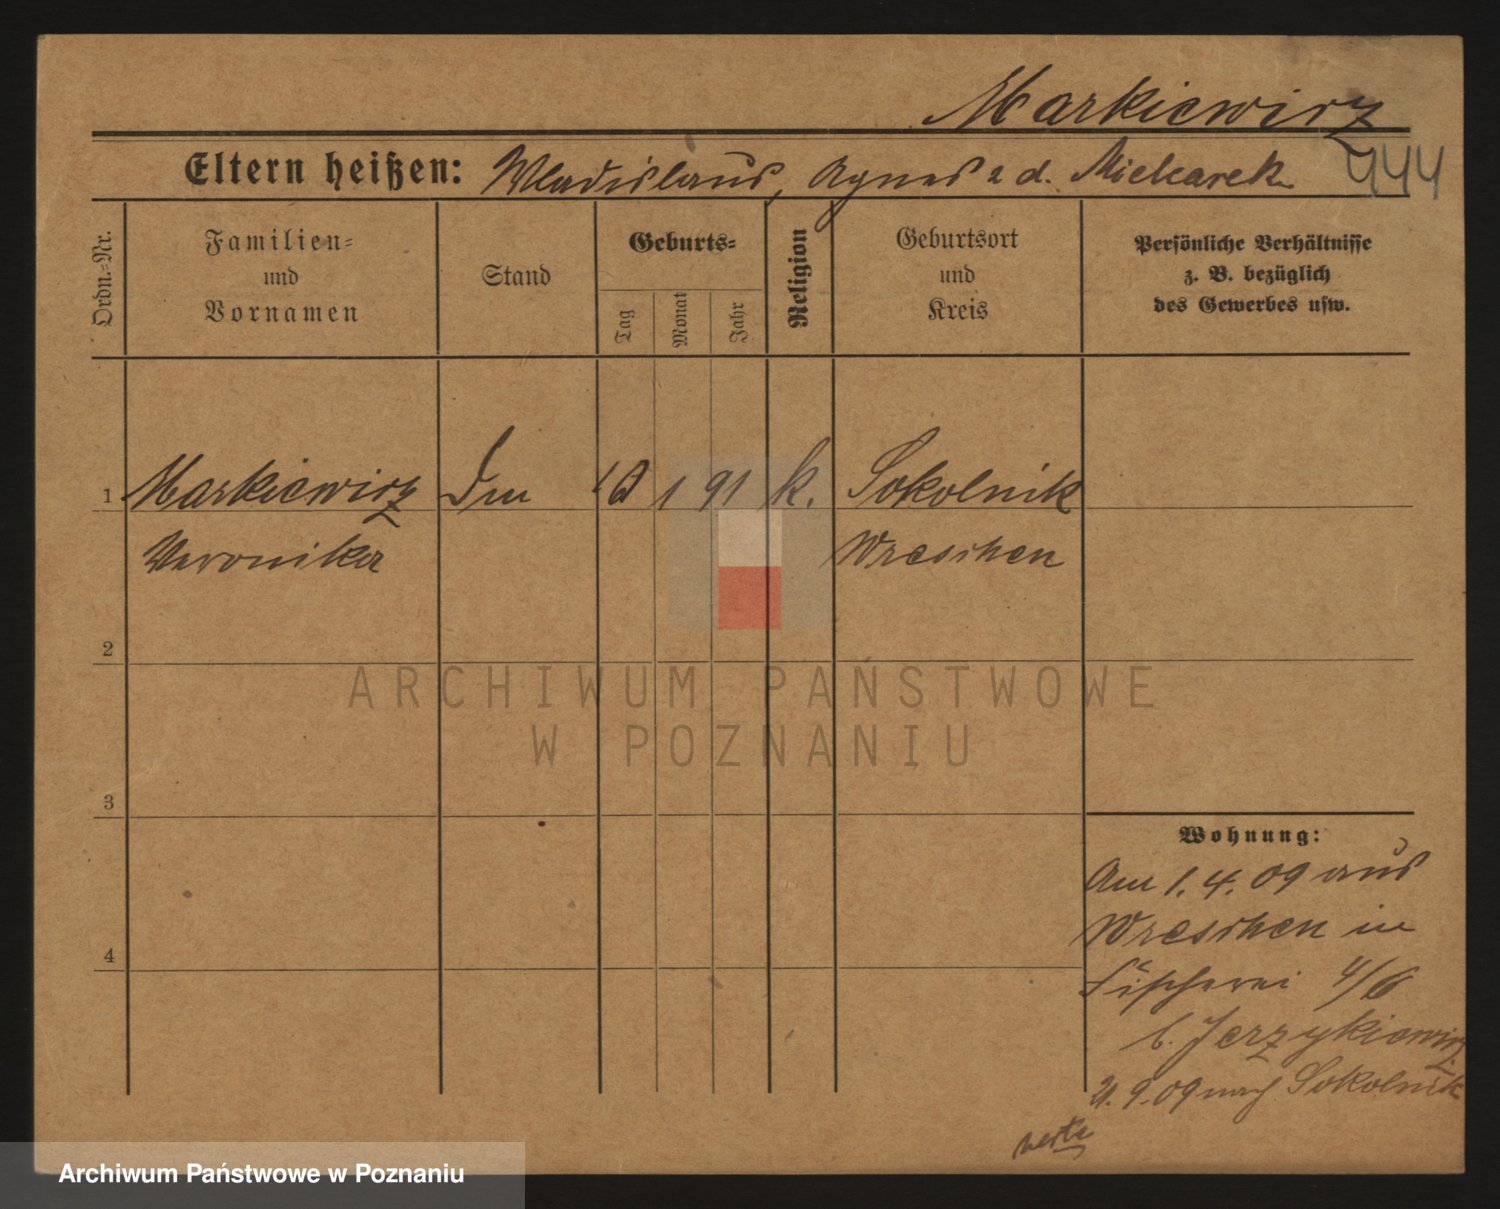 Markiewicz
Eltern heißen: Wladislaus, Agnes a d. Mielcarek
444
Ordn.-Nr.
Familien-
und
Vornamen
Stand
Geburts-
Tag
Monat
Jahr
Religion
Geburtsort
und
Kreis
Persönliche Verhältnisse
z. B. bezüglich
des Gewerbes usw.
1 Markiewicz 1 91 k. Sokolnik
Veronika Wreschen
2
ARCHIWUM PAŃSTWOWE
W POZNANIU
3
Wohnung:
Am 1. 4. 09 aus
Wreschen in
4
Fischerei 4/6
b. Jerzykiewicz
21. 9. 09 nach Sokolnik
Archiwum Państwowe w Poznaniu